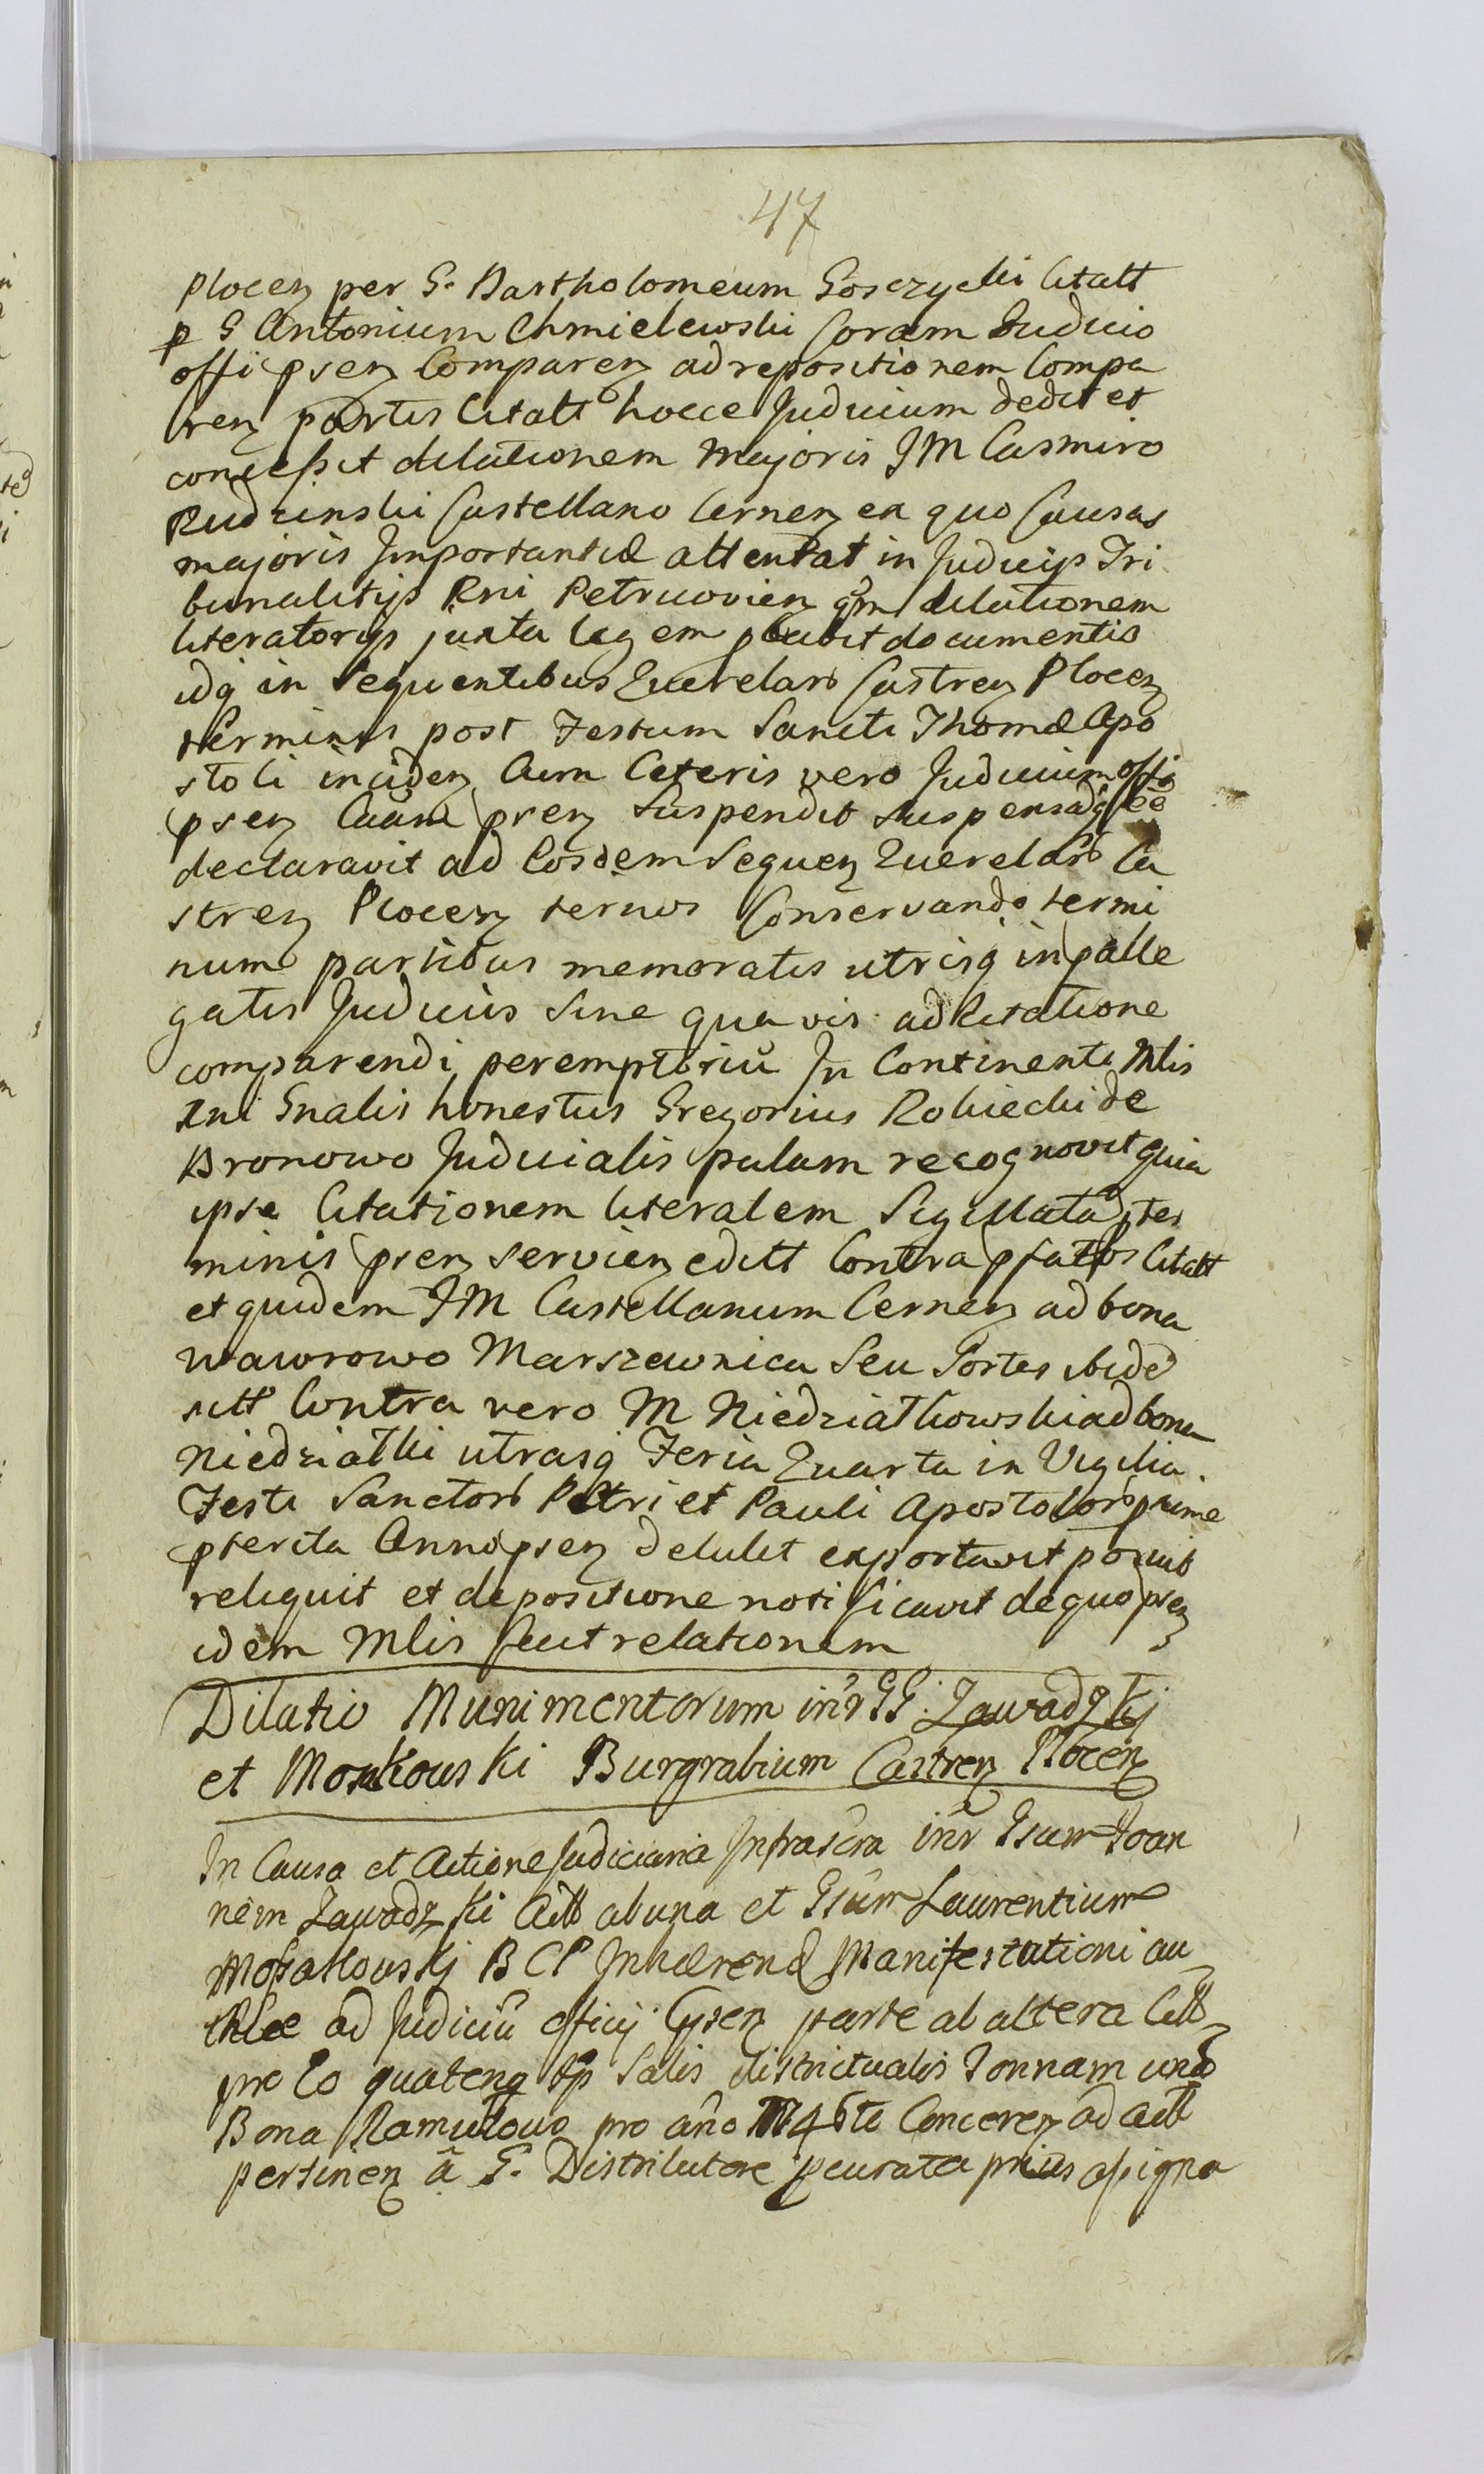 47
Plocen per G. Bartholomeum Gosczycki Citatt
p G Antonium Chmielewski Coram Judicio
offi psen Comparen ad repositionem Compa
ren partis Citatt hocce Judicium dedit et
concessit dilationem Majoris JM Casmiro
Rudzinski Castellano Cernen ex quo Causas
majoris Importantiæ attentat in Judicijs Tri
bunalitijs Rni Petricovien qm dilationem
literatorijs juxta legem documentis
idq in Sequentibus Querelar Castren Plocen
terminis post Festum Sancti Thomæ Apo
stoli inciden Cum Ceteris vero Judicium offi
psen Cuam pren Suspendit suspensaq ee
declaravit ad Eosdem Sequen Querelar Ca
stren Plocen ternos Conservando termi
num partibus memoratis utrisq in palle
gatis Judiciis Sine quavis adcitatione
comparendi peremptoriu In Continenti Mlis
Rni Gnalis honestus Gregorius Robiecki de
Bronowo Judicialis palam recognovit quia
ipse Citationem literalem Sigillata ter
minis pren servien editt Contra pfattos Citatt
et quidem JM Castellanum Cernen ad bona
Wawrowo Marszewnica Seu Sortes ibide
sitt Contra vero M Niedziałkowski ad bona
Niedziałki utrasq Feria Quarta in Vigilia
Festi Sanctor Petri et Pauli Apostolor pxime
pterita Anni psen detulit exportavit posuit
reliquit et depositione notificavit de quo psen
idem Mlis fecit relationem
Dilatio Munimentorum inr GG. Zawadzkj
et Mosakowski Burgrabium Castren Plocen
In Causa et Actione Judiciaria Infrascra inr Gsum Joan
nem Zawadzki Actt ab una et Gsum Laurentium
Mossakowskj B C P Inhæren Manifestationi au
ad Judiciu officij psen parte ab altera Citt
pro Eo quatenq Salis districtualis Tonnam
Bona Ramutowo pro año 1746to Conceren ad actt
pertinen â G. Distributore pcurata prius assigna